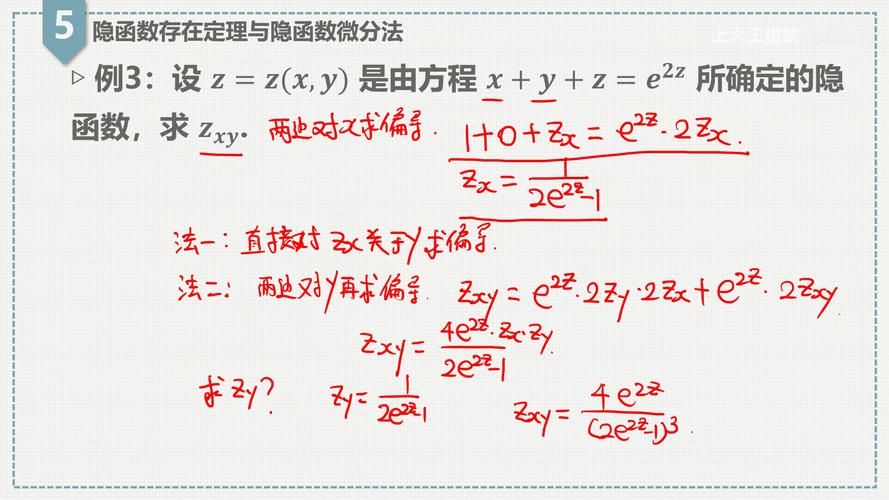 5 隐函数存在定理与隐函数微分法
▷ 例3：设 z = z(x, y) 是由方程 x + y + z = e^{2z} 所确定的隐
函数，求 z_{xy}. 两边对x求偏导. 1+0+z_x = e^{2z}·2z_x.
z_x = \frac{1}{2e^{2z}-1}
法一：直接对 z_x 关于y求偏导.
法二：两边对y再求偏导. z_{xy} = e^{2z}·2z_y·2z_x + e^{2z}·2z_{xy}.
z_{xy} = \frac{4e^{2z}·z_x·z_y}{2e^{2z}-1}.
求z_y? z_y = \frac{1}{2e^{2z}-1} z_{xy} = \frac{4e^{2z}}{(2e^{2z}-1)^3}.